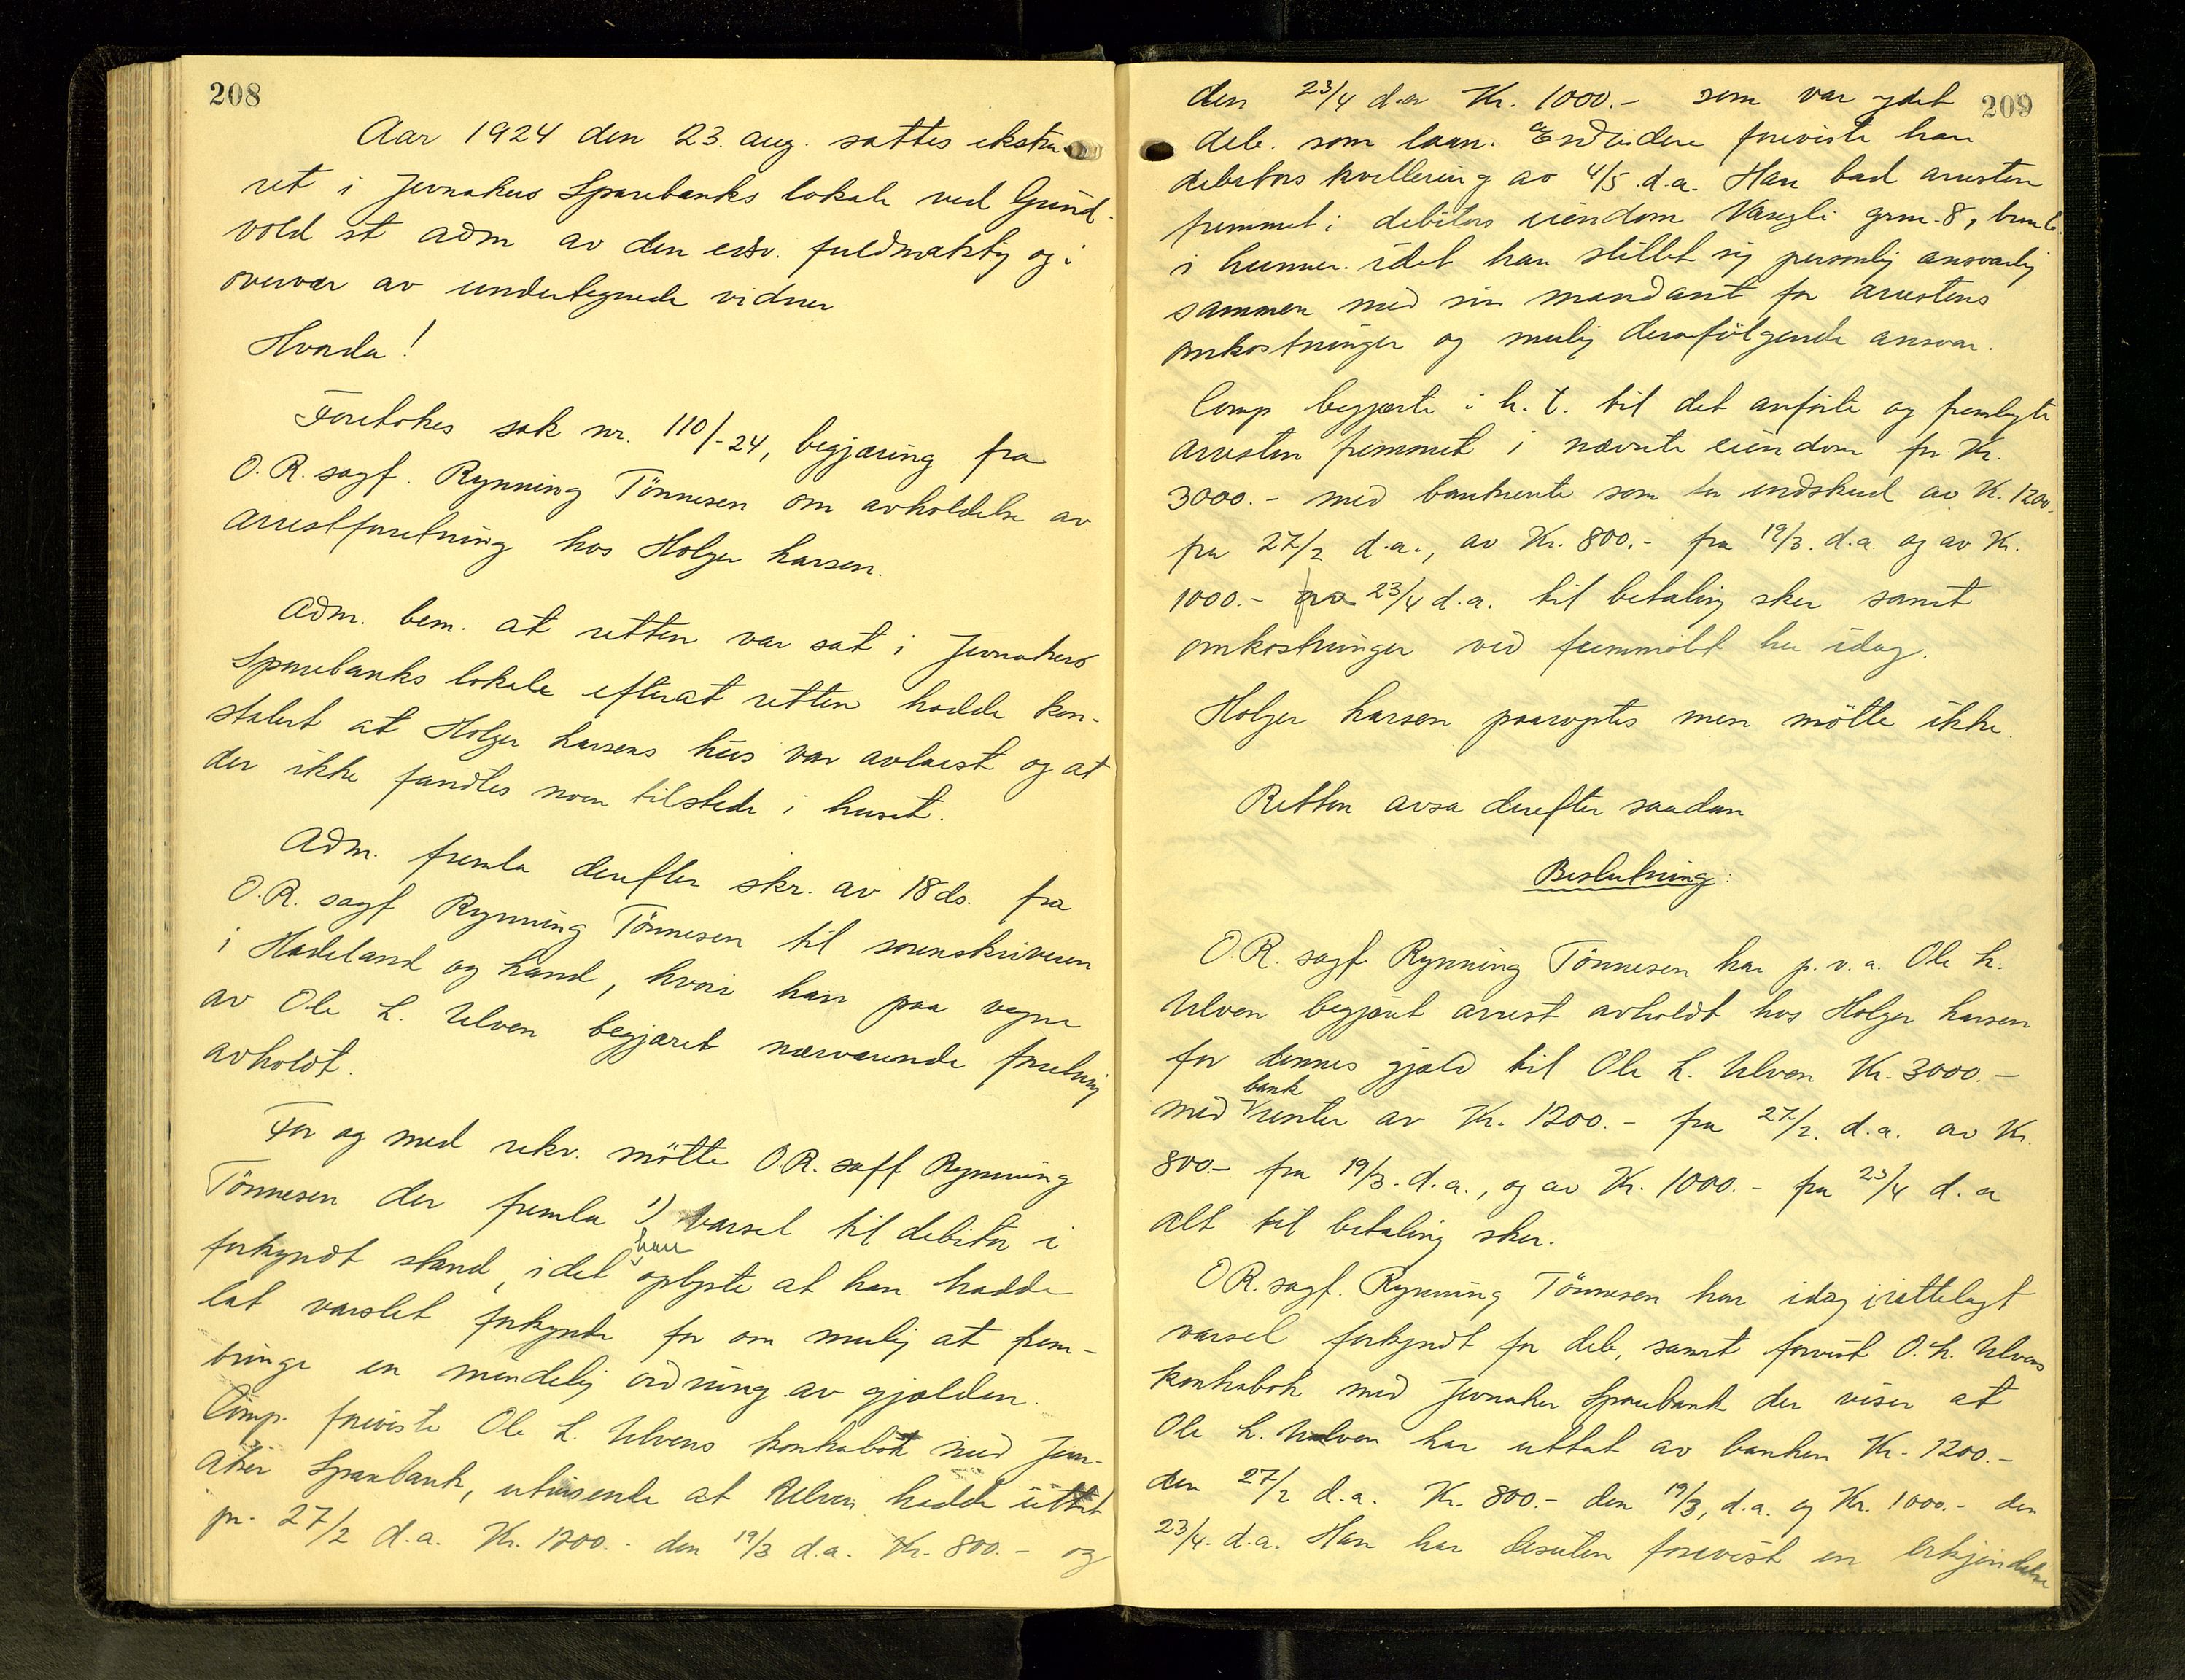 208
Aar 1924 den 23. aug. sattes ekstra
ret i Jevnakers Sparebanks lokale ved Grind-
vold st adm av den edsv. fuldmæktig og i
overvær av undertegnede vidner
Hvorda!
Foretokes sak nr. 110/-24, begjæring fra
O.R. sagf. Rynning Tönnesen om avholdelse av
arrestforretning hos Holger Larsen.
Adm. bem. at retten var sat i Jevnakers
Sparebanks lokale efterat retten hadde kon-
statert at Holger Larsens hus var avlaast og at
der ikke fandtes noen tilstede i huset.
Adm. fremla derefter skr. av 18 ds. fra
O.R. sagf Rynning Tönnesen til sorenskriveren
i Hadeland og Land, hvori han paa vegne
av Ole L. Ulven begjæret nærværende forretning
avholdt.
For og med rekv. mötte O.R. saff Rynning
Tönnesen der fremla 1) varsel til debitor i
forkyndt stand, idet han oplyste at han hadde
lat varslet forkynde for om mulig at frem-
bringe en mindelig ordning av gjælden.
Comp. foreviste Ole L. Ulvens kontrabok med Jevn-
aker Sparebank, utvisende at Ulven hadde uttat
pr. 27/2 d.a. Kr. 1200.- den 19/3 d.a. Kr. 800.- og
209
den 23/4 d.a Kr. 1000.- som var ydet
deb. som laan. Endvidere foreviste han
debitors kvittering av 4/5 d.a. Han bad arresten
fremmet i debitors eiendom grnr. 8, brnr 6.
i idet han stillet sig personlig ansvarlig
sammen med sin mandant for arrestens
omkostninger og mulig dermed følgende ansvar.
Comp begjærte i h. t. til det anførte og fremlagte
arresten fremmet i nævnte eiendom for Kr.
3000.- med bankrente som av K. 1200.-
fra 27/2 d.a., av Kr. 800.- fra 19/3. d.a. og av Kr.
1000.- fra 23/4 d.a. til betaling sker samt
omkostninger ved fremmötet her idag.
Holger Larsen paaroptes men mötte ikke.
Retten avsa derefter saadan
Beslutning:
O.R. sagf. Rynning Tönnesen har p.v.a. Ole L.
Ulven begjært arrest avholdt hos Holger Larsen
for dennes gjæld til Ole L. Ulven Kr. 3000.-
med bank renter av Kr. 1200.- fra 27/2. d.a. av Kr.
800.- fra 19/3. d.a., og av Kr. 1000.- fra 23/4 d.a
alt til betaling sker.
O.R. sagf. Rynning Tönnesen har idag irettelagt
varsel forkyndt for deb, samt forevist O. L. Ulvens
kontrabok med Jevnaker Sparebank der viser at
Ole L. Ulven har uttat av banken Kr. 1200.-
den 27/2 d.a. Kr. 800.- den 19/3, d.a. og Kr. 1000.- den
23/4. d.a. Han har desuten forevist en erkjendelse